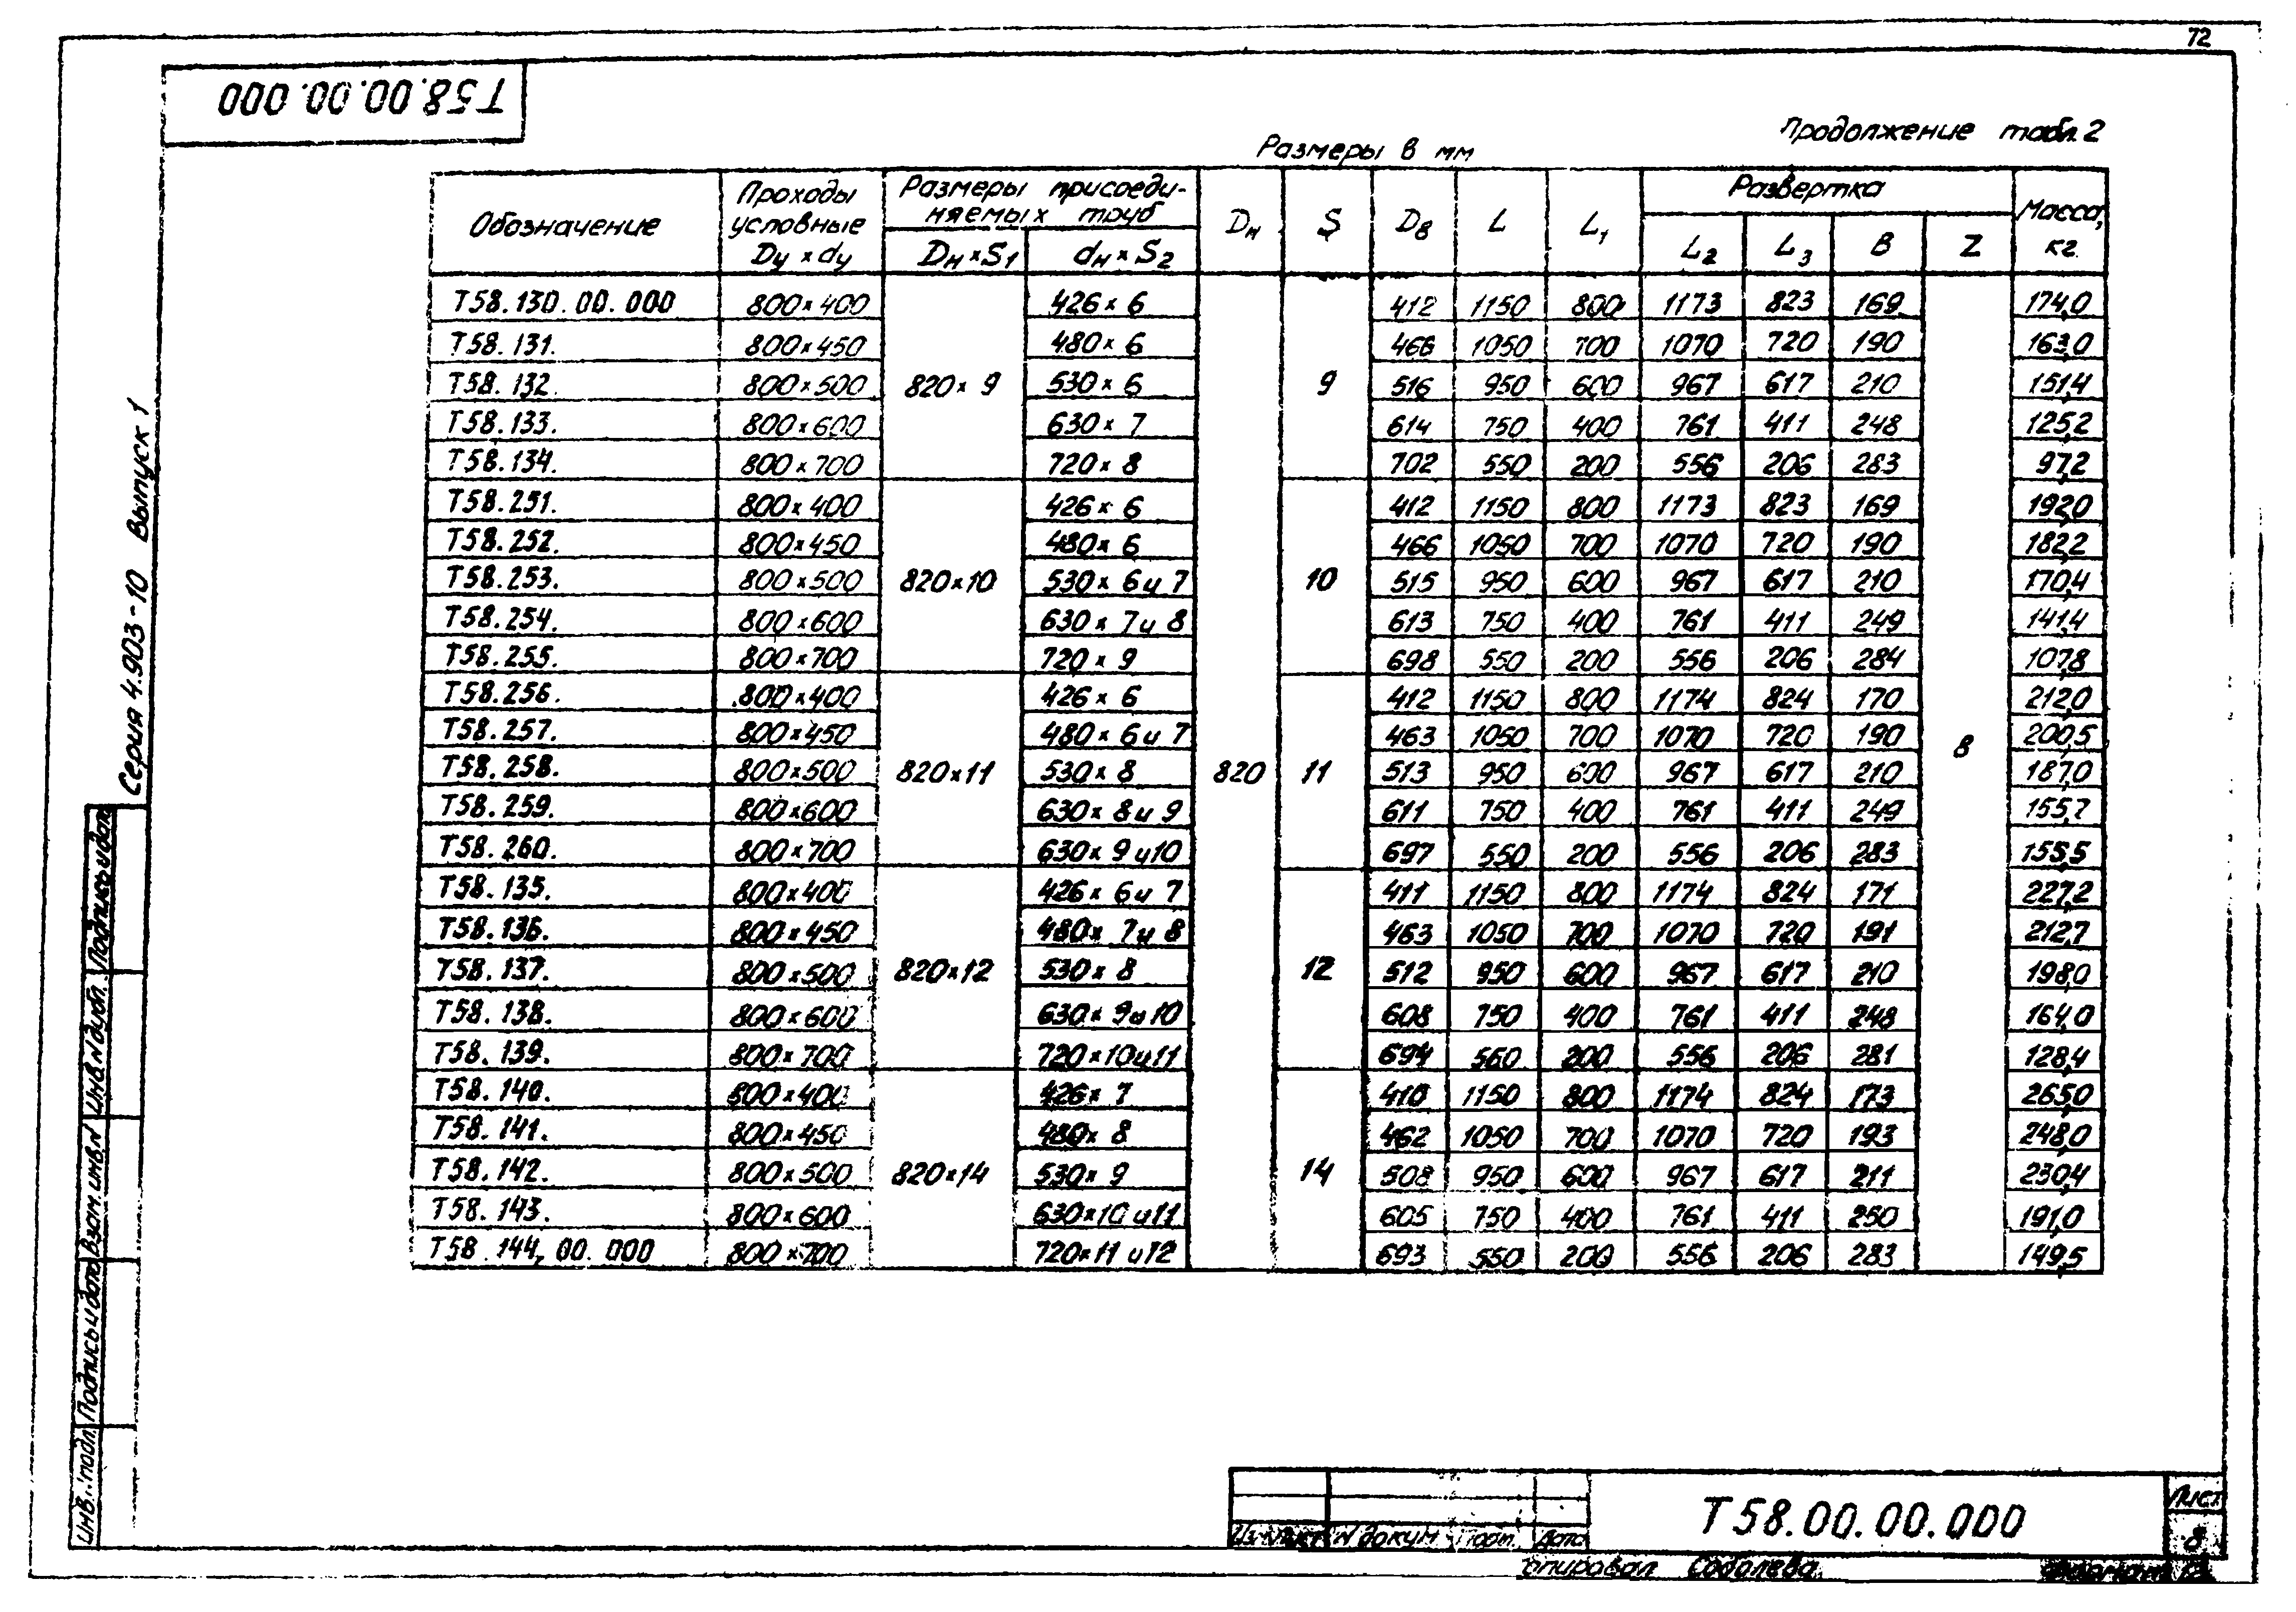 72
Т58.00.00.000
Продолжение табл. 2
Размеры в мм
Обозначение | Проходы условные Dу × dу | Размеры присоединяемых труб | Dн | S | Dв | L | L1 | Развертка | Масса, кг.
Dн × S1 | dн × S2 | L2 | L3 | B | Z
Т58.130.00.000 | 800×400 | 820×9 | 426×6 | 820 | 9 | 412 | 1150 | 800 | 1173 | 823 | 169 | 8 | 174,0
Т58.131. | 800×450 | 480×6 | 466 | 1050 | 700 | 1070 | 720 | 190 | 163,0
Т58.132. | 800×500 | 530×6 | 516 | 950 | 600 | 967 | 617 | 210 | 151,4
Т58.133. | 800×600 | 630×7 | 614 | 750 | 400 | 761 | 411 | 248 | 125,2
Т58.134. | 800×700 | 720×8 | 702 | 550 | 200 | 556 | 206 | 283 | 97,2
Т58.251. | 800×400 | 820×10 | 426×6 | 10 | 412 | 1150 | 800 | 1173 | 823 | 169 | 192,0
Т58.252. | 800×450 | 480×6 | 466 | 1050 | 700 | 1070 | 720 | 190 | 182,2
Т58.253. | 800×500 | 530×6 и 7 | 515 | 950 | 600 | 967 | 617 | 210 | 170,4
Т58.254. | 800×600 | 630×7 и 8 | 613 | 750 | 400 | 761 | 411 | 249 | 141,4
Т58.255. | 800×700 | 720×9 | 698 | 550 | 200 | 556 | 206 | 284 | 107,8
Т58.256. | 800×400 | 820×11 | 426×6 | 11 | 412 | 1150 | 800 | 1174 | 824 | 170 | 212,0
Т58.257. | 800×450 | 480×6 и 7 | 463 | 1050 | 700 | 1070 | 720 | 190 | 200,5
Т58.258. | 800×500 | 530×8 | 513 | 950 | 600 | 967 | 617 | 210 | 187,0
Т58.259. | 800×600 | 630×8 и 9 | 611 | 750 | 400 | 761 | 411 | 249 | 155,7
Т58.260. | 800×700 | 630×9 и 10 | 697 | 550 | 200 | 556 | 206 | 283 | 155,5
Т58.135. | 800×400 | 820×12 | 426×6 и 7 | 12 | 411 | 1150 | 800 | 1174 | 824 | 171 | 227,2
Т58.136. | 800×450 | 480×7 и 8 | 463 | 1050 | 700 | 1070 | 720 | 191 | 212,7
Т58.137. | 800×500 | 530×8 | 512 | 950 | 600 | 967 | 617 | 210 | 198,0
Т58.138. | 800×600 | 630×9 и 10 | 608 | 750 | 400 | 761 | 411 | 248 | 164,0
Т58.139. | 800×700 | 720×10 и 11 | 694 | 560 | 200 | 556 | 206 | 281 | 128,4
Т58.140. | 800×400 | 820×14 | 426×7 | 14 | 410 | 1150 | 800 | 1174 | 824 | 173 | 265,0
Т58.141. | 800×450 | 480×8 | 462 | 1050 | 700 | 1070 | 720 | 193 | 248,0
Т58.142. | 800×500 | 530×9 | 508 | 950 | 600 | 967 | 617 | 211 | 230,4
Т58.143. | 800×600 | 630×10 и 11 | 605 | 750 | 400 | 761 | 411 | 250 | 191,0
Т58.144, 00.000 | 800×700 | 720×11 и 12 | 693 | 550 | 200 | 556 | 206 | 283 | 149,5
Серия 4.903-10 Выпуск 1
Подпись и дата
Инв.N дубл.
Взам.инв.N
Подпись и дата
Инв. подл.
N докум
Дата
Т58.00.00.000
Лист
8